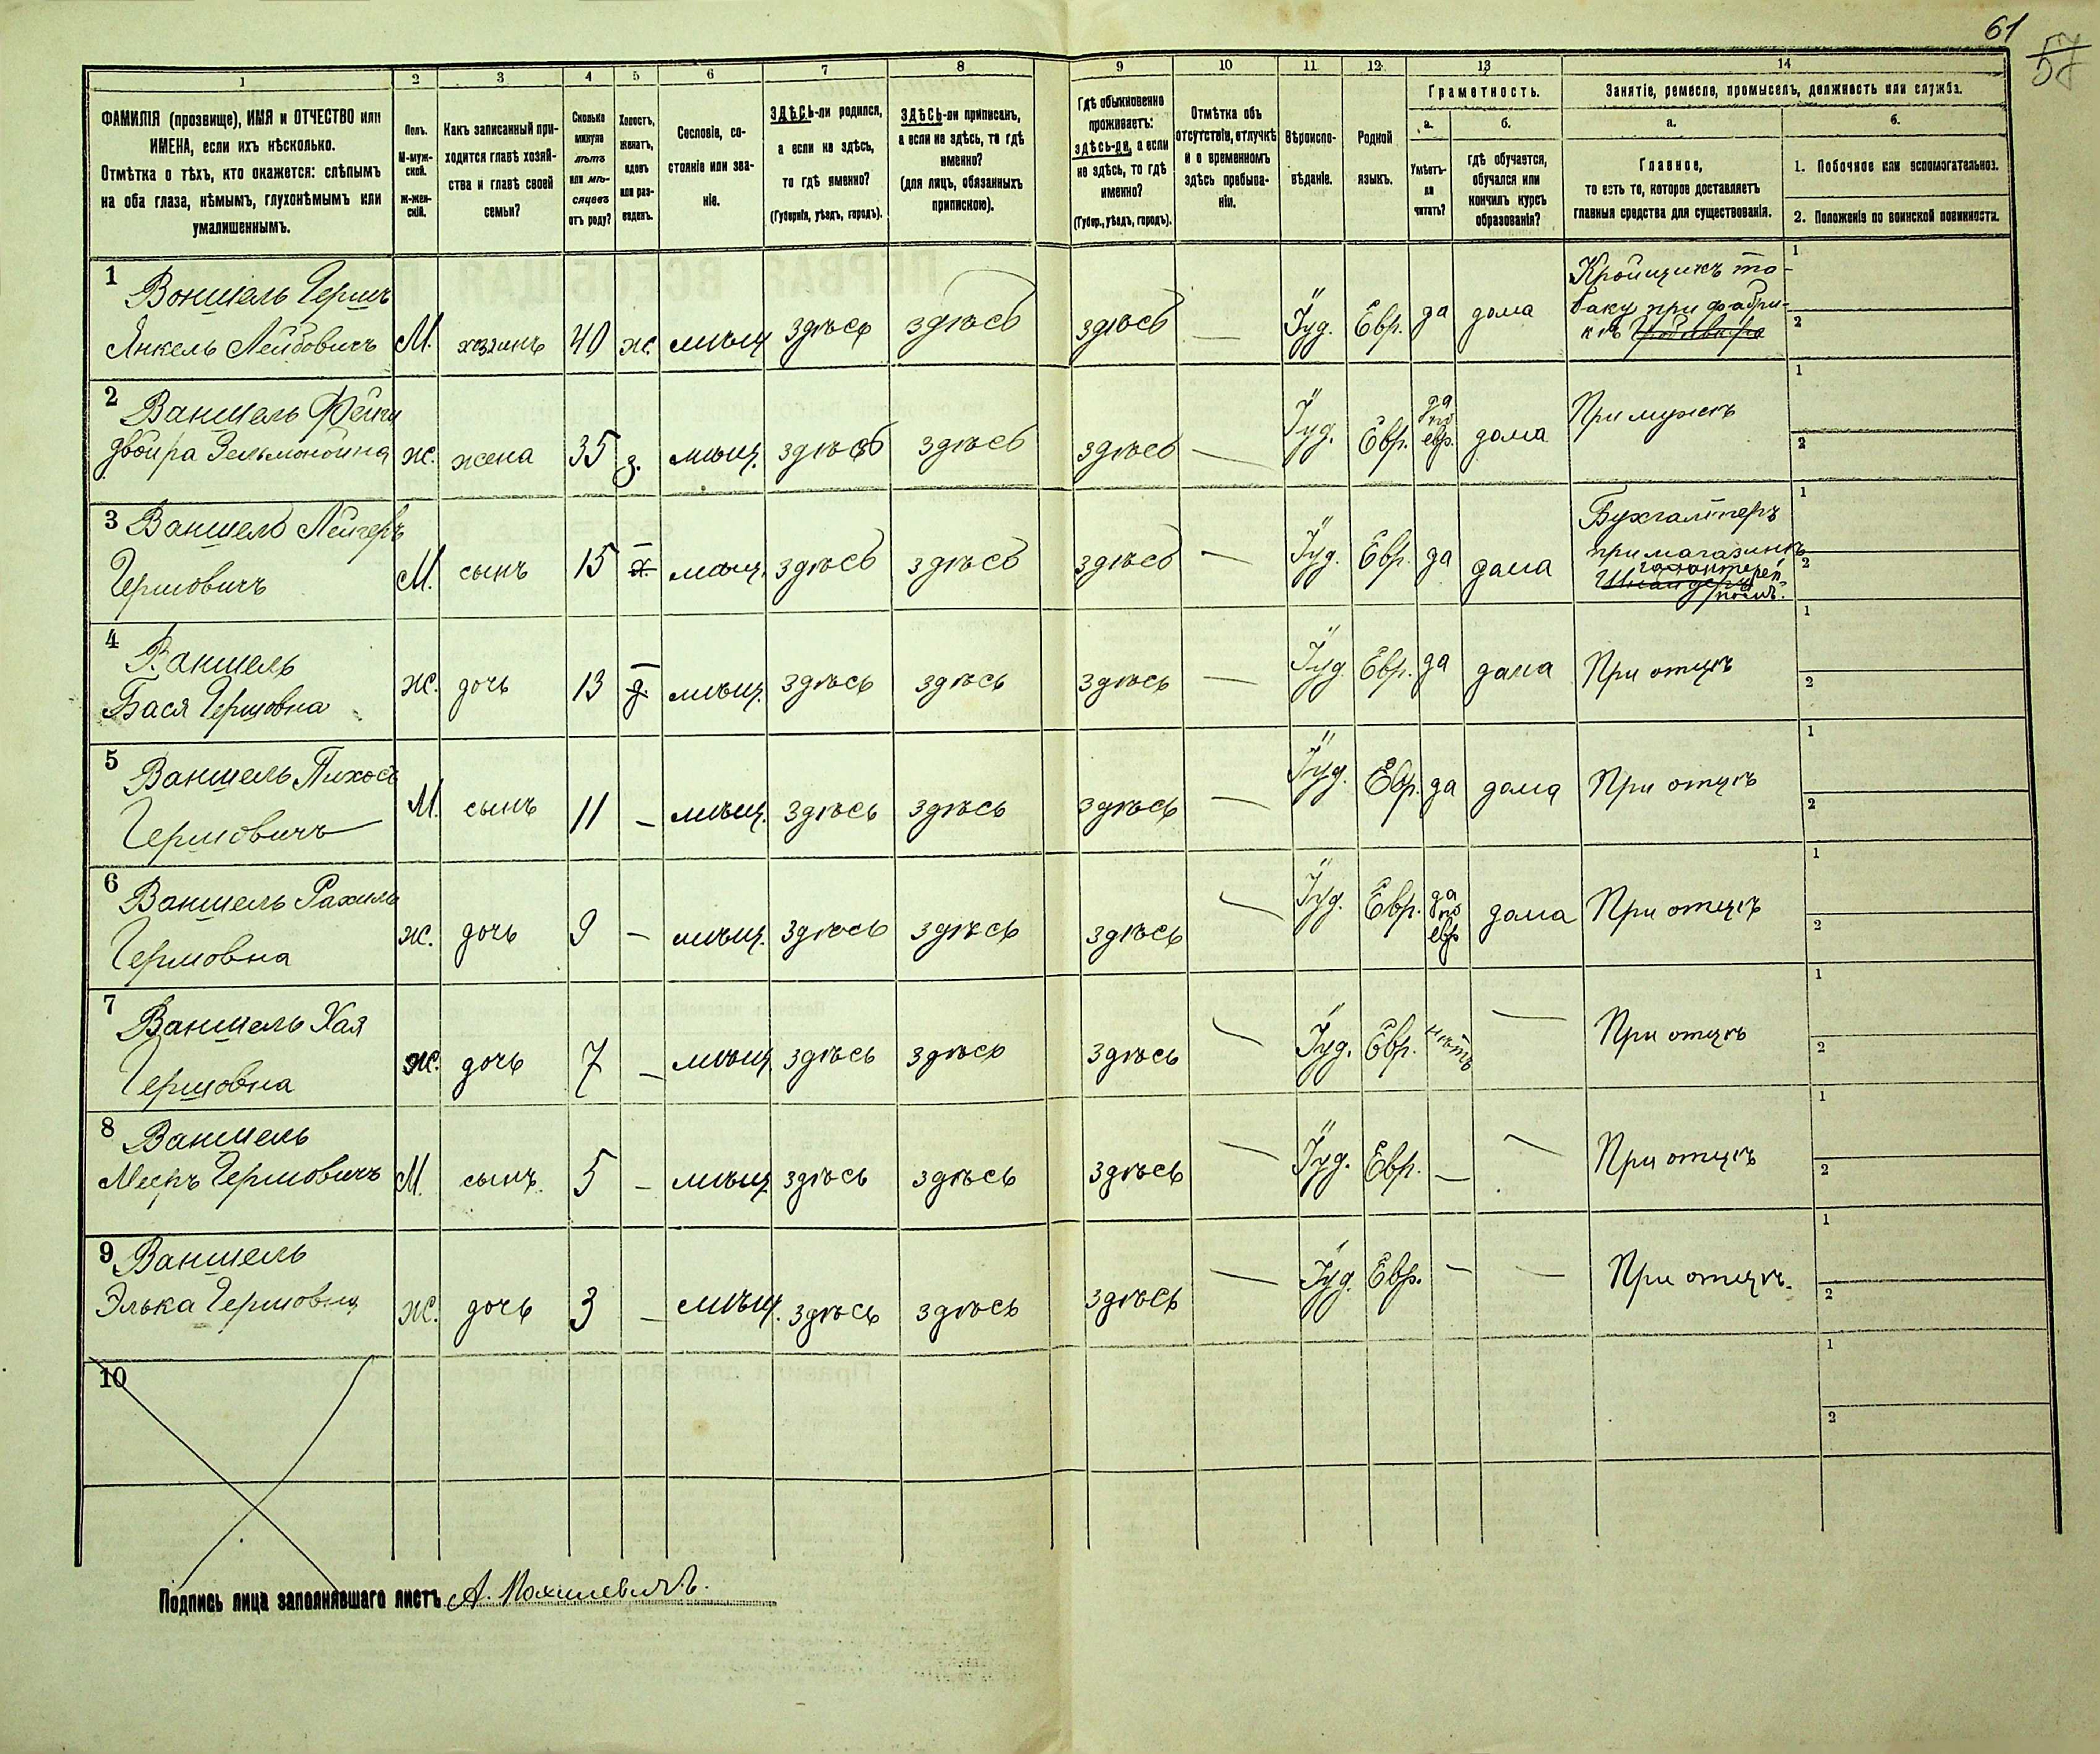 61
57
1 2 3 4 5 6 7 8 9 10 11 12 13 14
ФАМИЛІЯ (прозвище), ИМЯ и ОТЧЕСТВО или
ИМЕНА, если ихъ нѣсколько.
Отмѣтка о тѣхъ, кто окажется: слѣпымъ
на оба глаза, нѣмымъ, глухонѣмымъ или
умалишеннымъ.
Полъ.
М-муж-
ской.
Ж-жен-
скій.
Какъ записанный при-
ходится главѣ хозяй-
ства и главѣ своей
семьи?
Сколько
минуло
лѣтъ
или мѣ-
сяцевъ
отъ роду?
Холостъ,
женатъ,
вдовъ
или раз-
веденъ.
Сословіе, со-
стояніе или зва-
ніе.
ЗДѢСЬ-ли родился,
а если не здѣсь,
то гдѣ именно?
(Губернія, уѣздъ, городъ).
ЗДѢСЬ-ли приписанъ,
а если не здѣсь, то гдѣ
именно?
(для лицъ, обязанныхъ
припискою).
Гдѣ обыкновенно
проживаетъ:
здѣсь-ли, а если
не здѣсь, то гдѣ
именно?
(Губер., уѣздъ, городъ).
Отмѣтка объ
отсутствіи, отлучкѣ
и о временномъ
здѣсь пребыва-
ніи.
Вѣроиспо-
вѣданіе.
Родной
языкъ.
Грамотность.
а.
Умѣетъ-
ли
читать?
б.
гдѣ обучается,
обучался или
кончилъ курсъ
образованія?
Занятіе, ремесло, промыселъ, должность или служба.
а.
Главное,
то есть то, которое доставляетъ
главныя средства для существованія.
б.
1. Побочное или вспомогательное.
2. Положеніе по воинской повинности.
1 Ваншель Гершъ
Янкель Лейбовичъ М. хозяинъ 40 ж. мѣщ здѣсь здѣсь здѣсь — Іуд. Евр. да дома
Кройщикъ та-
баку при фабри-
кѣ
1
2
2 Ваншель Фейга
Двойра Зельмановна ж. жена 35 з. мѣщ. здѣсь здѣсь здѣсь — Іуд. Евр. да по евр. дома При мужѣ
1
2
3 Ваншель Лейзеръ
Гершовичъ М. сынъ 15 — х. мѣщ. здѣсь здѣсь здѣсь — Іуд. Евр. да дома
Бухгалтеръ
при магазинѣ
галантерей-
номъ.
1
2
4 Ваншель
Бася Гершовна ж. дочь 13 — д. мѣщ. здѣсь здѣсь здѣсь — Іуд. Евр. да дома При отцѣ
1
2
5 Ваншель Пихосъ
Гершовичъ М. сынъ 11 — мѣщ. здѣсь здѣсь здѣсь — Іуд. Евр. да дома При отцѣ
1
2
6 Ваншель Рахиль
Гершовна ж. дочь 9 — мѣщ. здѣсь здѣсь здѣсь — Іуд. Евр. да по евр дома При отцѣ
1
2
7 Ваншель Хая
Гершовна ж. дочь 7 — мѣщ. здѣсь здѣсь здѣсь — Іуд. Евр. нѣтъ — При отцѣ
1
2
8 Ваншель
Мееръ Гершовичъ М. сынъ. 5 — мѣщ. здѣсь здѣсь здѣсь — Іуд. Евр. — — При отцѣ
1
2
9 Ваншель
Элька Гершовна ж. дочь 3 — мѣщ. здѣсь здѣсь здѣсь — Іуд. Евр. — — При отцѣ.
1
2
10
1
2
Подпись лица заполнявшаго листъ А.